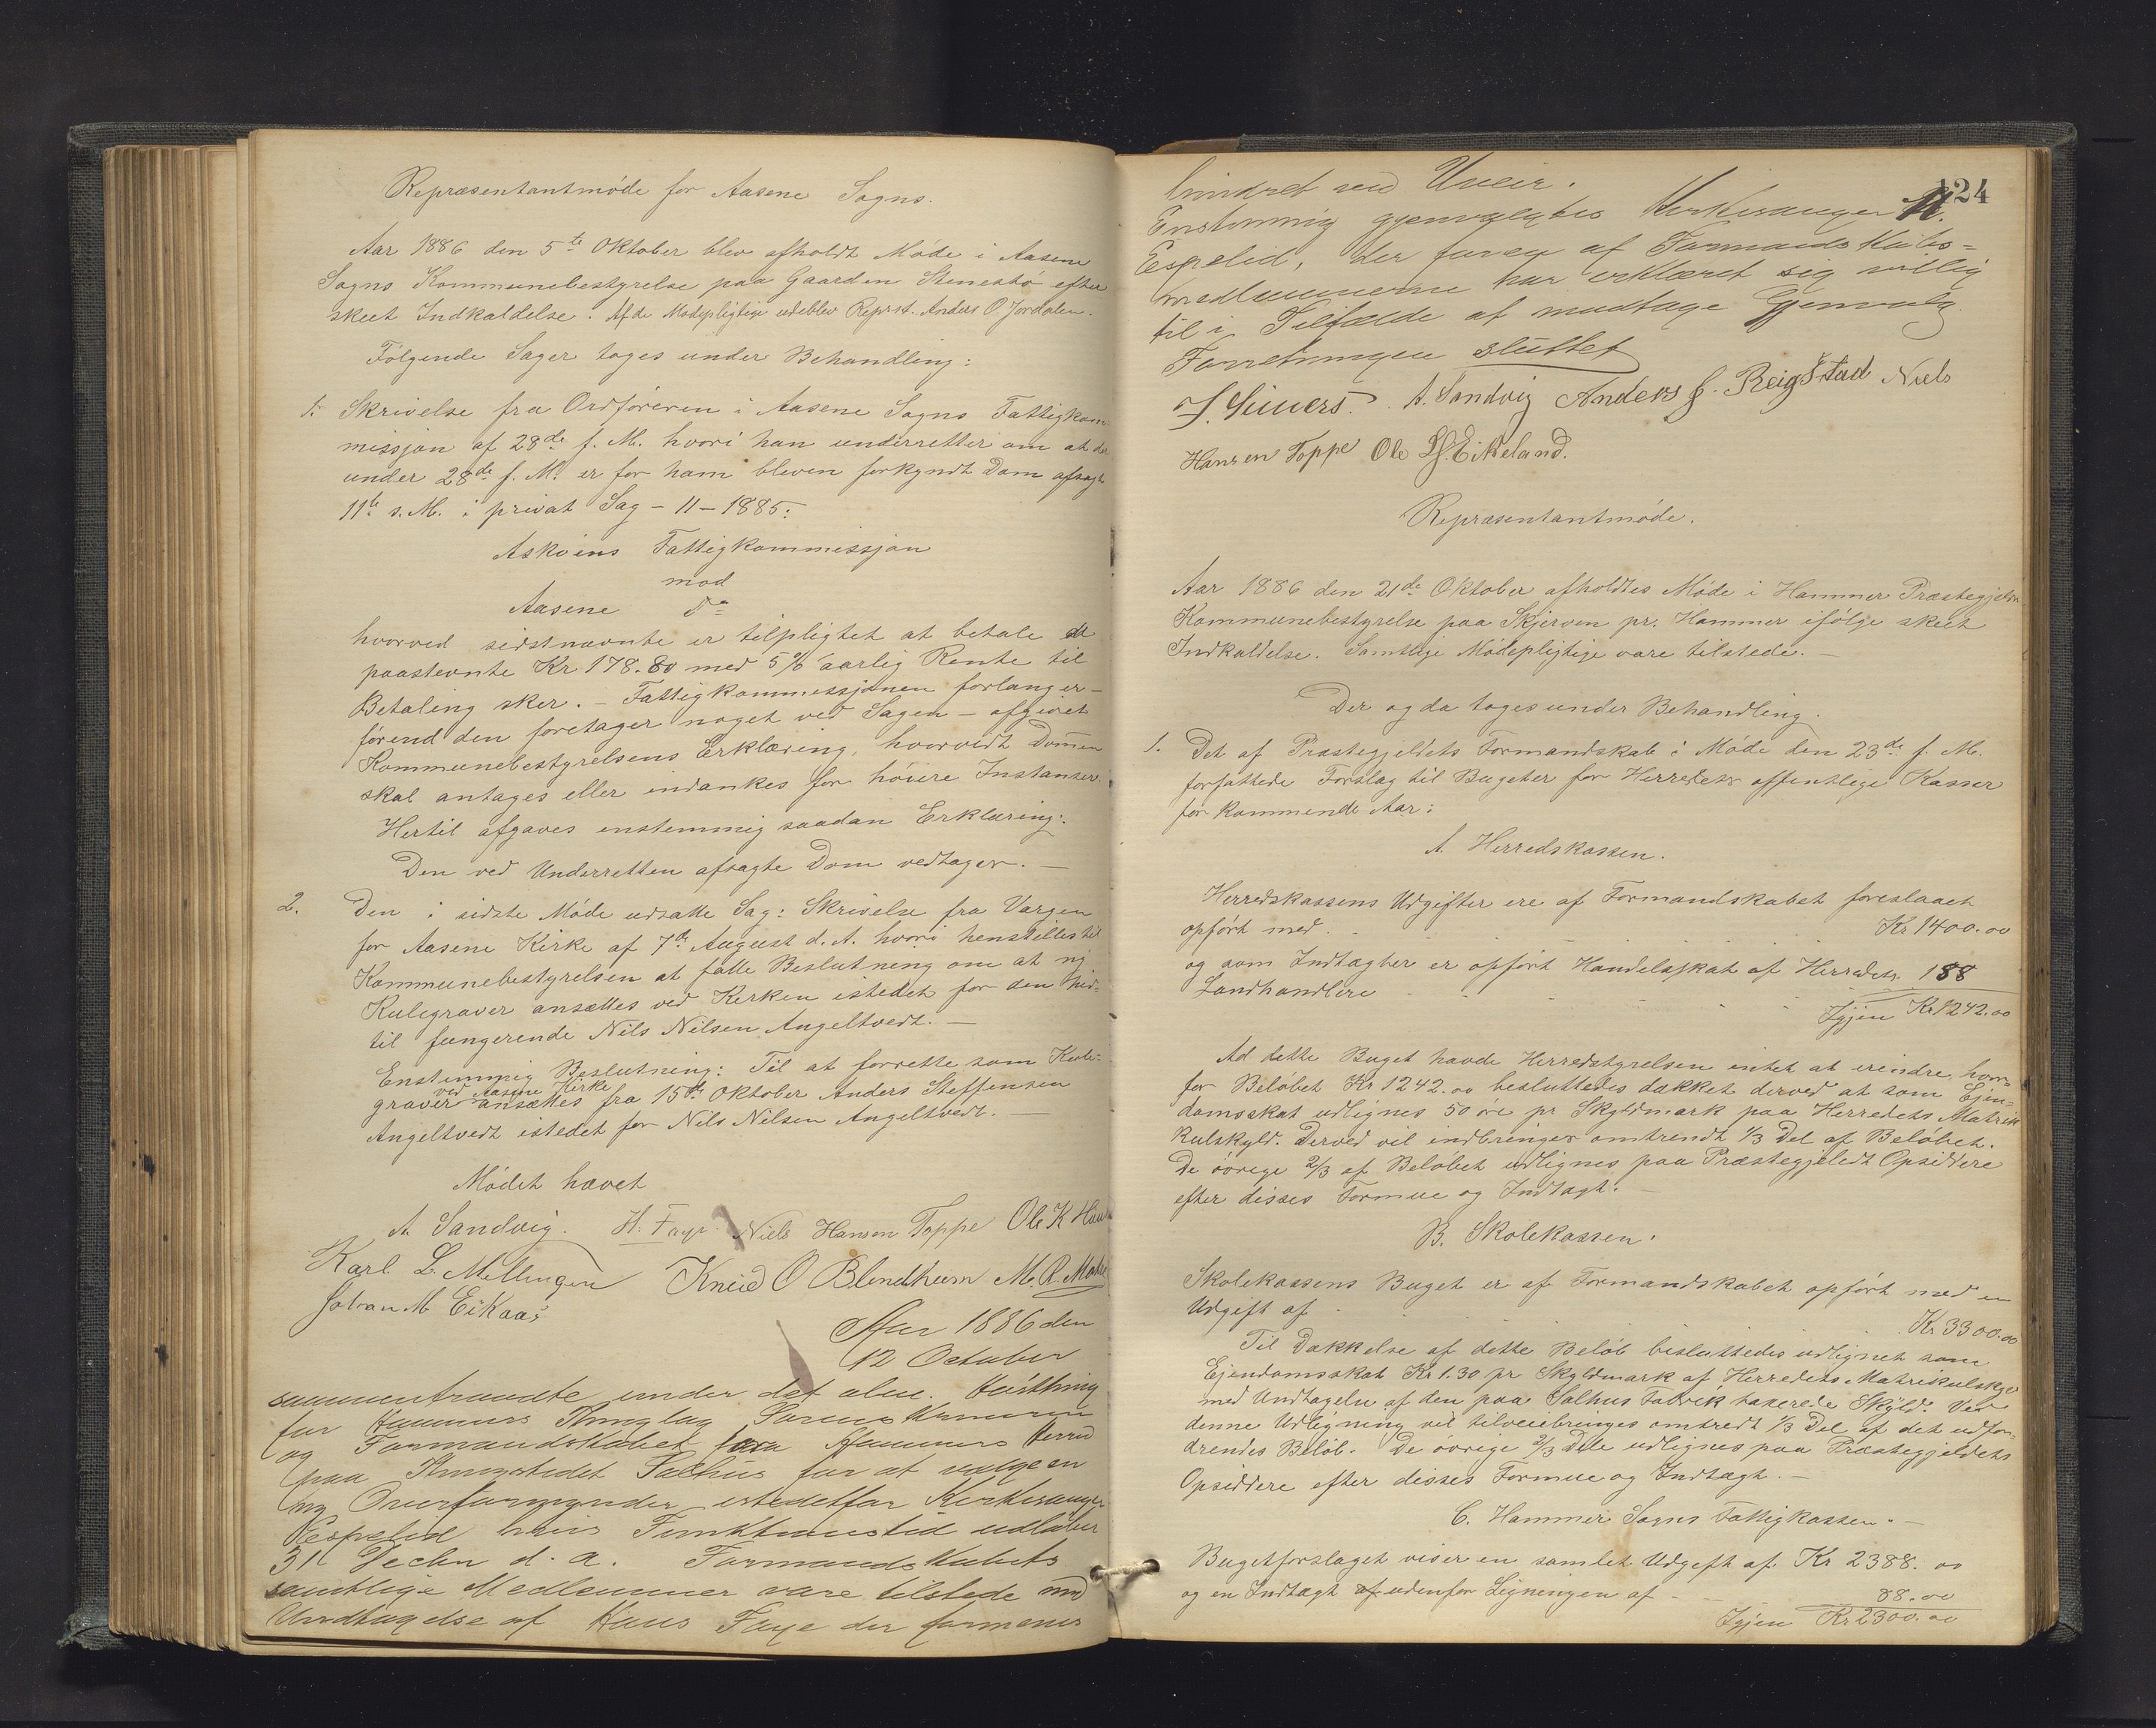 Repræsentantmöde for Aasene Sogns.
Aar 1886 den 5te Oktober blev afholdt Möde i Aasene
Sogns Kommunebestyrelse paa Gaarden Stenestö efter
skeet Indkaldelse. Af de Modepligtige udeblev Reprst. Anders O. Jordalen.
Fölgende Sager toges under Behandling:
1. Skrivelse fra Ordföreren i Aasene Sogns Fattigkom
missjon af 28de f. M. hvori han underretter om at der
under 28de f. M. er for ham bleven forkyndt Dom afsagt
11te s. M. i privat Sag – 11 – 1885:
Asköens Fattigkommissjon
mod
Aasene do
hvorved sidstnævnte er tilpligtet at betale de
paastevnte Kr 178.80 med 5% aarlig Rente til
Betaling sker. – Fattigkommissjonen forlanger –
förend den foretager noget ved Sagen – afgivet
Kommunebestyrelsens Erklæring, hvorvidt Dommen
skal antages eller indankes for höiere Instanser.
Hertil afgaves enstemmig saadan Erklæring:
Den ved Underretten afsagte Dom vedtages. –
2. Den i sidste Möde udsatte Sag: Skrivelse fra Vergen
for Aasene Kirke af 7de August d. A. hvori henstilles til
Kommunebestyrelsen at fatte Beslutning om at ny
Kulegraver ansættes ved Kirken istedet for den hid-
til fungerende Nils Nilsen Angeltvedt. –
Enstemmig Beslutning: Til at forrette som Kule-
graver ved Aasene Kirke ansættes fra 15de Oktober Anders Steffensen
Angeltvedt istedet for Nils Nilsen Angeltvedt. –
Mödet hævet
A. Sandvig. H. Faye Niels Hansen Toppe Ole K
Karl L. Mellingen Knud O Blindheim M. R.
Johan M. Eikaas
Aar 1886 den
12 October
sammentraadte under det alm. Hösthing
for Hammers Thinglag Sorenskriveren
og Formandskabet fra Hammers Herred
paa Thingstedet Salhus for at vælge en
ny Overformynder istedetfor Kirkesanger
Espelid hvis Funktionstid udløber
31 Decbr d. a. Formandskabets
samtlige Medlemmer vare tilstede med
Undtagelse af Hans Faye der formenes
124
hindret ved Uveir.
Enstemmig gjenvalgtes Kirkesanger N.
Espelid, der forøg af Formandskabs-
medlemmerne har erklæret sig villig
til i Tilfælde at modtage Gjenvalg.
Forretningen sluttet
A. Sandvig Anders J. Reigstad Niels
Hansen Toppe Ole Eikeland.
Repræsentantmöde.
Aar 1886 den 21de Oktober afholdtes Möde i Hammer Præstegjelds
Kommunebestyrelse paa Skjerven pr. Hammer ifölge skeet
Indkaldelse. Samtlige Mödepligtige vare tilstede. –
Der og da toges under Behandling:
1. Det af Præstegjeldets Formandskab i Möde den 23de f. M.
forfattede Forslag til Bugeter for Herredets offentlige Kasser
for kommende Aar:
A. Herredskassen.
Herredskassens Udgifter ere af Formandskabet foreslaaet
opfört med . . . . Kr 1400.00
og som Indtægter er opfört Handelsskat af Herredets 188
Landhandlere . . . .
Igjen Kr 1242.00
Ad dette Buget havde Herredstyrelsen intet at erindre, hvor-
for Belöbet Kr 1242.00 besluttedes dækket derved at som Ejen-
domsskat udlignes 50 öre pr Skyldmark paa Herredets Matrik
kulskyld. Derved vil indbringes omtrendt 1/3 Del af Belöbet.
De övrige 2/3 af Belöbet udlignes paa Præstegjeldets Opsiddere
efter disses Formue og Indtægt. –
B. Skolekassen.
Skolekassens Buget er af Formandskabet opfört med en
Udgift af . . . . Kr 3300.00
Til Dækkelse af dette Belöb besluttedes udlignet som
Ejendomsskat Kr 1.30 pr Skyldmark af Herredets Matrikulskyld
med Undtagelse af den paa Salhus Fabrik taxerede Skyld. Ved
denne Udligning vil tilveiebringes omtredt 1/3 Del af det udfor-
drendes Belöb. De övrige 2/3 Dele udlignes paa Præstegjeldets
Opsiddere efter disses Formue og Indtægt. –
C. Hammer Sogns Fattigkassen. –
Bugetforslaget viser en samlet Udgift af Kr 2388.00
og en Indtægt af udenfor Ligningen af – 88.00
Igjen Kr 2300.00